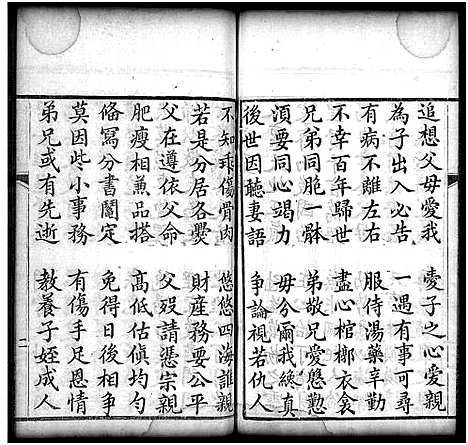 追想父母愛我　愛子之心愛親
為子出入必告　一遇有事可尋
有病不離左右　服侍湯藥辛勤
不幸百年歸世　盡心棺槨衣衾
兄弟同胞一體　弟敬兄愛慇懃
須要同心竭力　毋分爾我總真
後世因聽妻語　爭論視若仇人
不知戕傷骨肉　悠悠四海誰親
若是分居各爨　財産務要公平
父在遵依父命　父歿請憑宗親
肥瘦相兼品搭　高低估值均勻
俻寫分書鬮定　免得日後相爭
莫因些小事務　有傷手足恩情
弟兄或有先逝　教養子姪成人
二